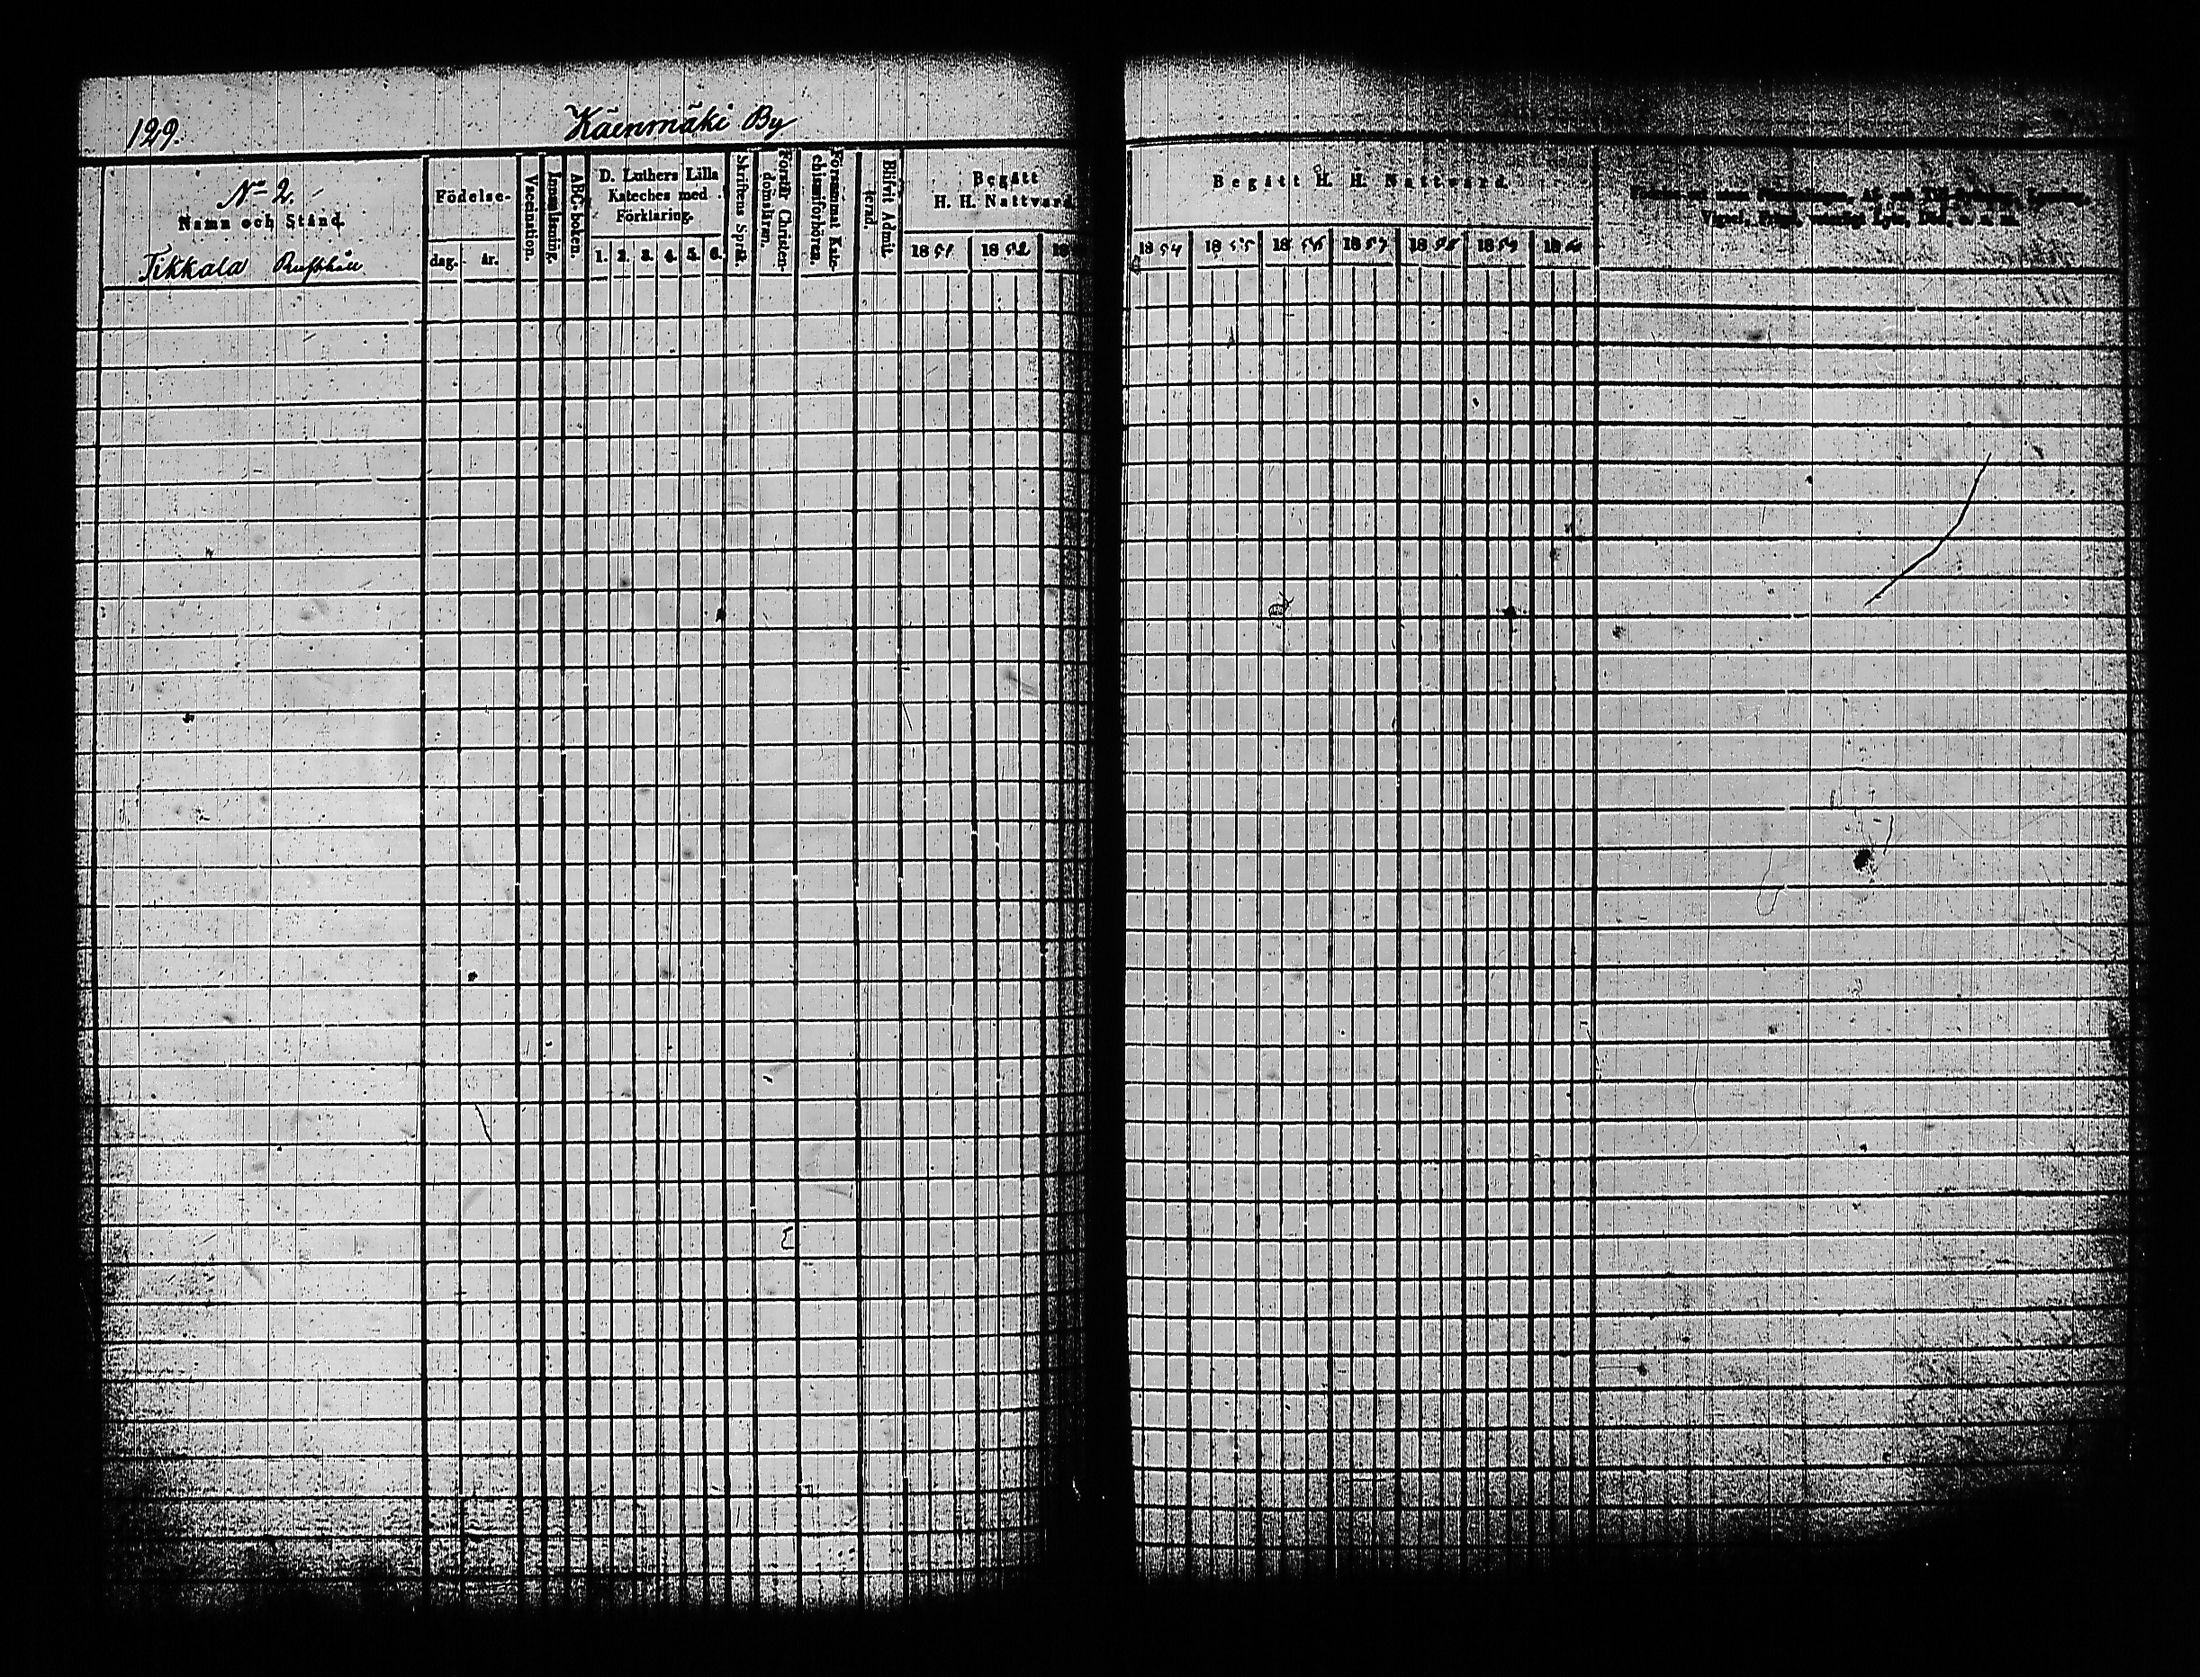 129.
Käenmäki By
No 2.
Namn och Stånd
Tikkala Rusthåll
Födelse-
dag. år.
Vaccination.
Innanläsning.
ABC-boken.
D. Luthers Lilla
Kateches med
Förklaring.
1. 2. 3. 4. 5. 6.
Skriftens Språk.
Förstår Christen-
domsläran.
Försummat Kate-
chismiförhören.
Blifvit Admit-
terad.
Begått
H. H. Nattvard
1851 1852 18
Begått H. H. Nattvard.
1854 1855 1856 1857 1858 1859 1860